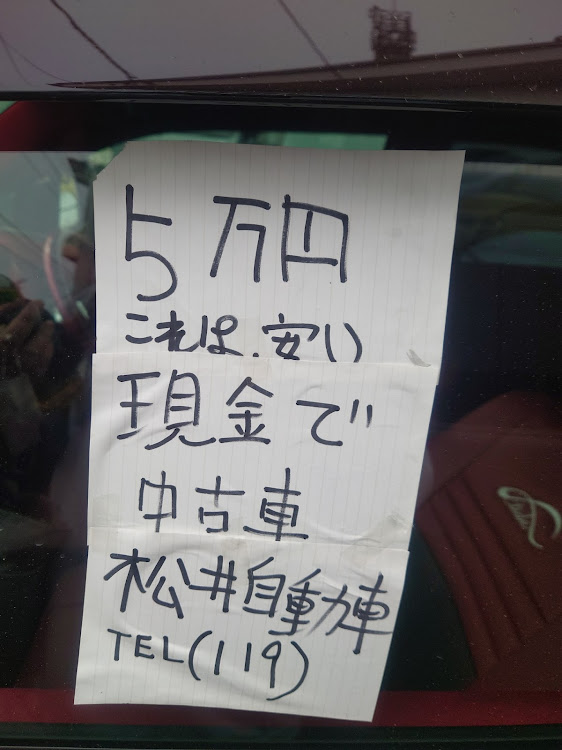 5万円
これは.安い
現金で
中古車
松井自動車
TEL(119)